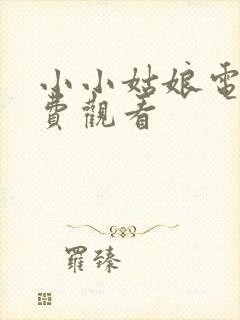 小小姑娘電
費觀看
羅臻